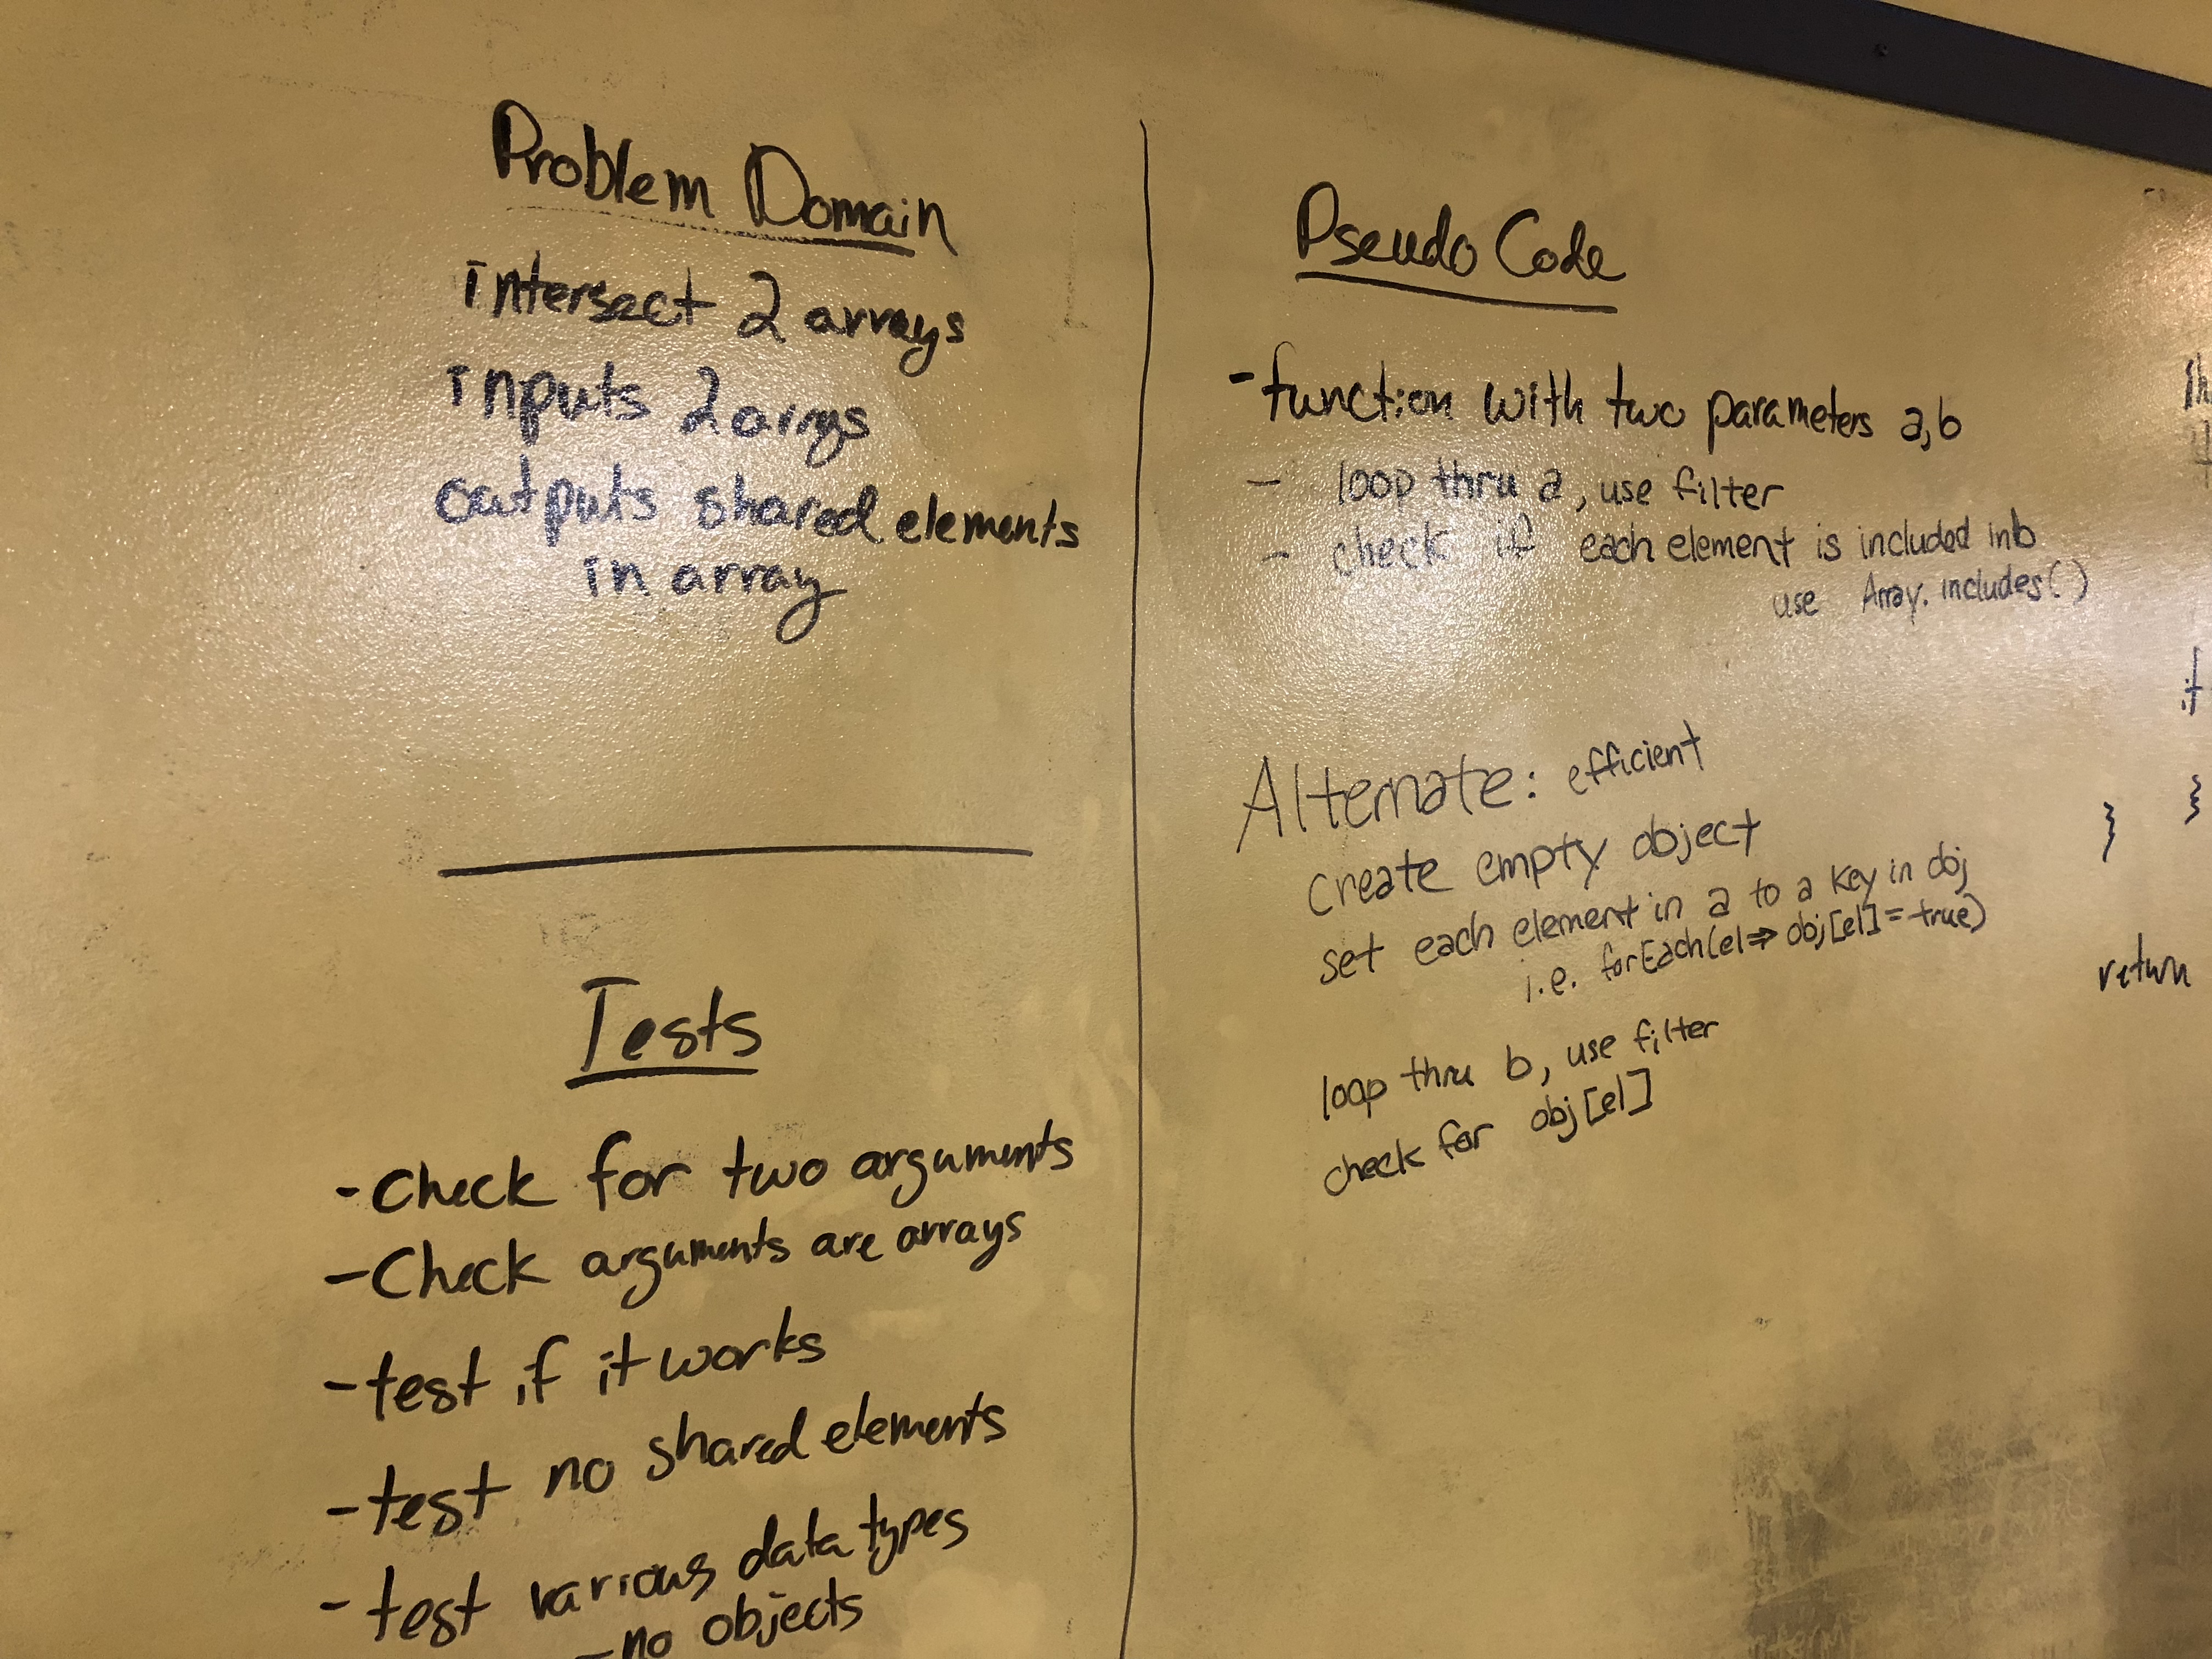 Problem Domain
intersect 2 arrays
inputs 2 arrays
outputs shared elements
in array
Tests
- Check for two arguments
- Check arguments are arrays
- test if it works
- test no shared elements
- test various data types
- no objects
Pseudo Code
- function with two parameters a,b
- loop thru a, use filter
- check if each element is included in b
use Array.includes()
Alternate: efficient
create empty object
set each element in a to a key in obj
i.e. forEach(el => obj[el] = true)
loop thru b, use filter
check for obj[el]
}
}
return